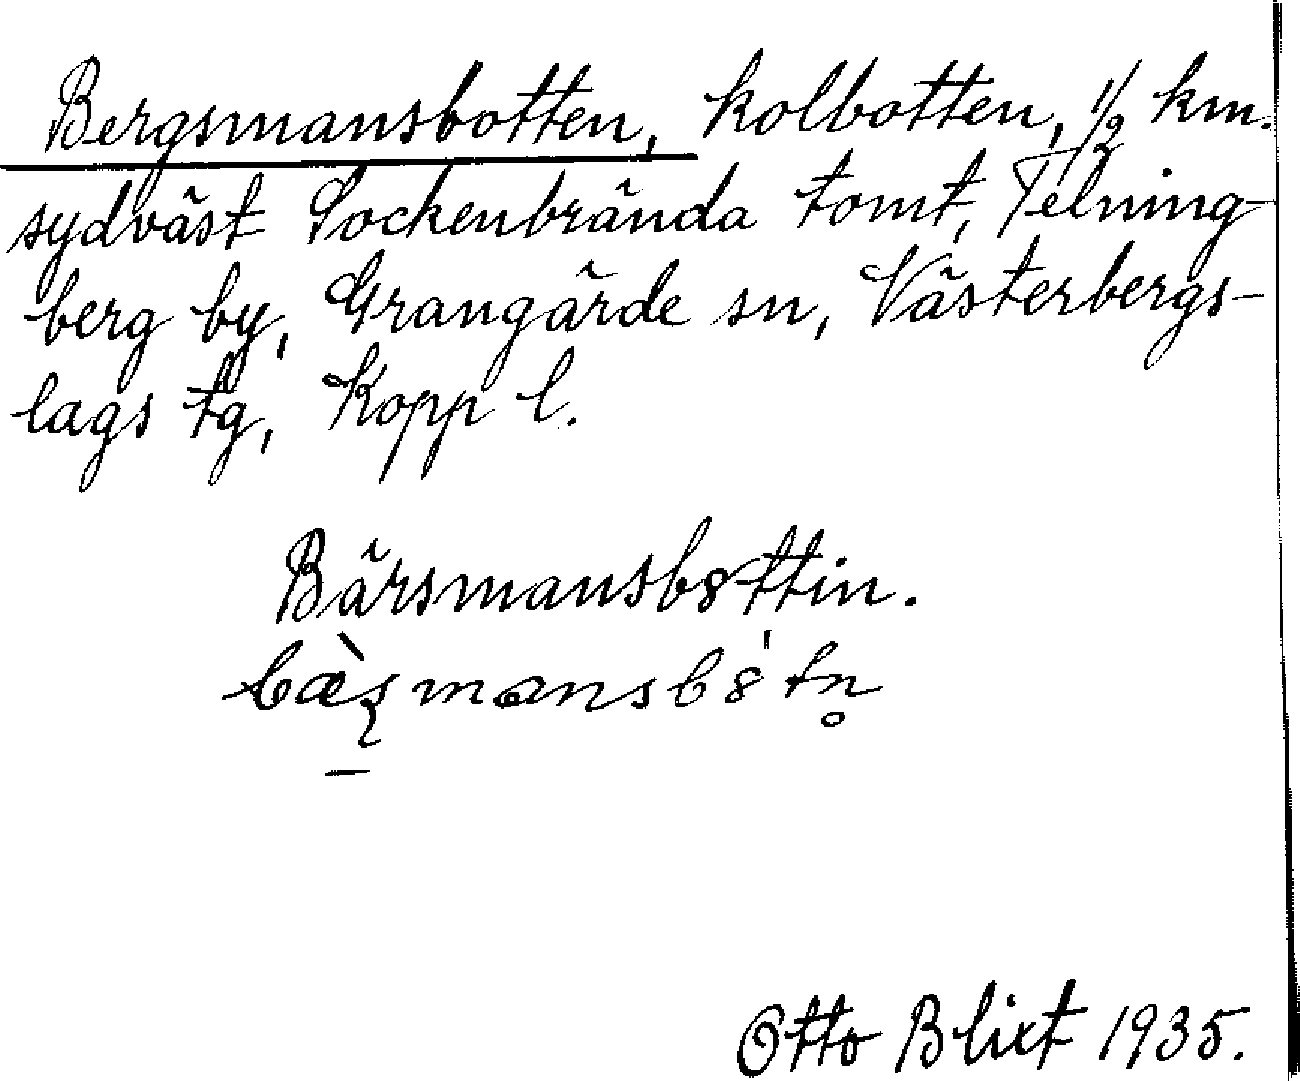 Bergsmansbotten, kolbotten, 1/2 km.
sydväst Sockenbrända tomt, Telning-
berg by, Grangärde sn, Västerbergs-
lags tg, Kopp l.
Bärsmansbȣttin.
bæ̀ʂmansbȣ́tn̥
Otto Blixt 1935.